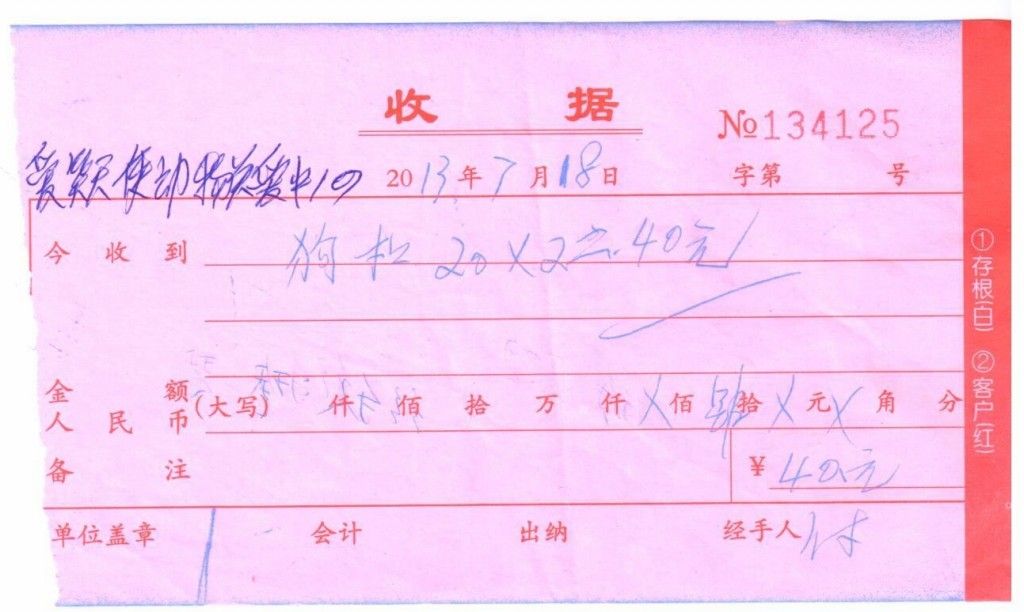 收 据
№134125
2013年7月18日 字第 号
今收到 狗 20×2=40元
金额
人民币 (大写) 仟 佰 拾 万 仟 X佰 肆拾 X元 X角 分
备注 ¥40元
单位盖章 会计 出纳 经手人
①存根(白) ②客户(红)